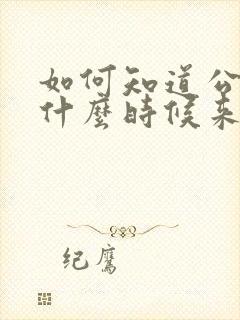 如何知道公
什麼時候來
纪鹰